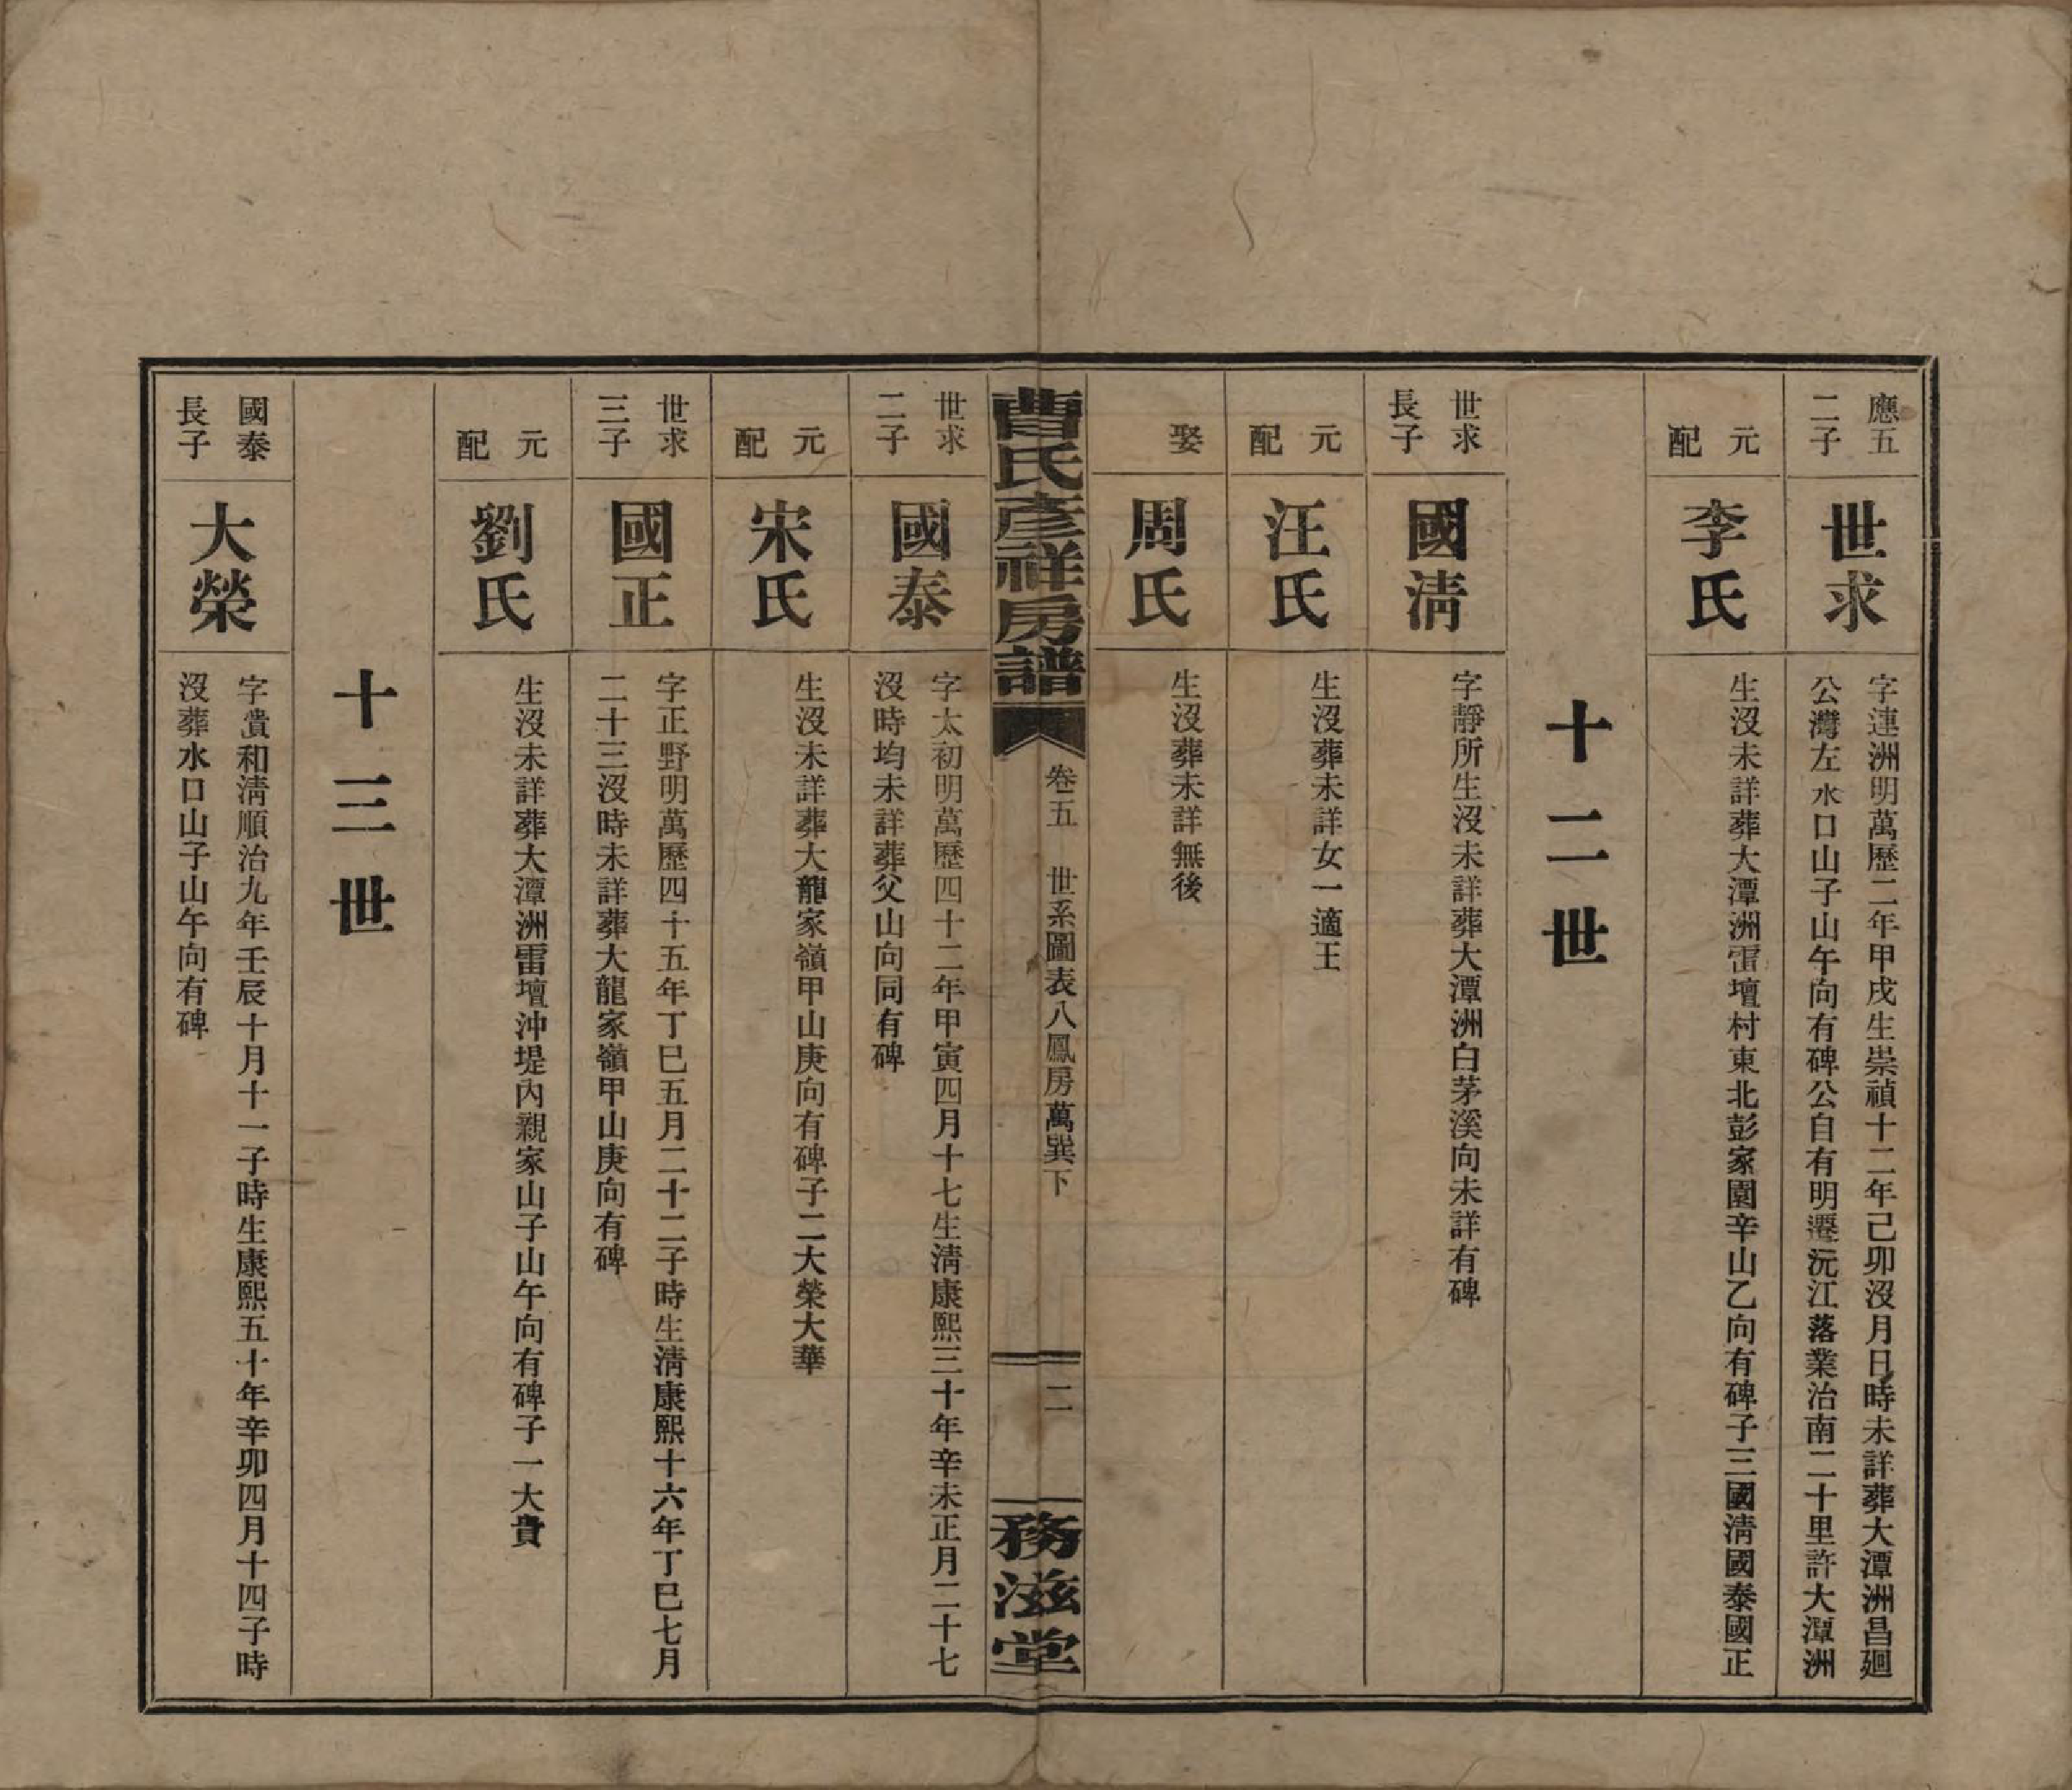 應五
二子
世求
字連洲明萬歷二年甲戌生崇禎十二年己卯沒月日時未詳葬大潭洲昌廻
公灣左水口山子山午向有碑公自有明遷沅江落業治南二十里許大潭洲
元
配
李氏
生沒未詳葬大潭洲雷壇村東北彭家園辛山乙向有碑子三國淸國泰國正
十二世
世求
長子
國淸
字靜所生沒未詳葬大潭洲白茅溪向未詳有碑
元
配
汪氏
生沒葬未詳女一適王
娶
周氏
生沒葬未詳無後
曹氏彥祥房譜
卷五 世系圖表八鳳房萬巽下
二
務滋堂
世求
二子
國泰
字太初明萬歷四十二年甲寅四月十七生淸康熙三十年辛未正月二十七
沒時均未詳葬父山向同有碑
元
配
宋氏
生沒未詳葬大龍家嶺甲山庚向有碑子二大榮大華
世求
三子
國正
字正野明萬歷四十五年丁巳五月二十二子時生淸康熙十六年丁巳七月
二十三沒時未詳葬大龍家嶺甲山庚向有碑
元
配
劉氏
生沒未詳葬大潭洲雷壇沖堤內親家山子山午向有碑子一大貴
十三世
國泰
長子
大榮
字貴和淸順治九年壬辰十月十一子時生康熙五十年辛卯四月十四子時
沒葬水口山子山午向有碑